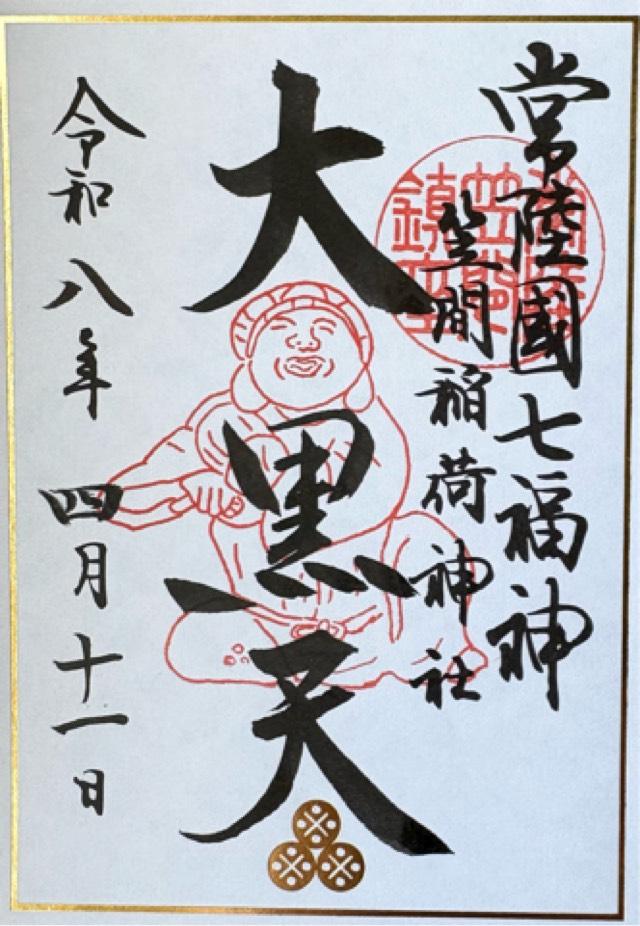 常陸國七福神
笠間稲荷神社
大黒天
令和八年 四月十一日